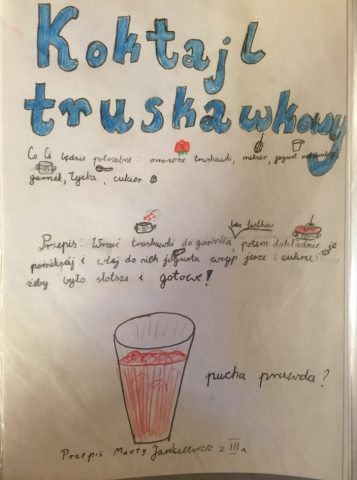 Koktajl
truskawkowy
Co Ci będzie potrzebne: mrożone truskawki, mikser, jogurt naturalny
garnek, łyżka, cukier
bez listków
Przepis: Wrzuć truskawki do garnka, potem dokładnie je
pomiksuj i wlej do nich jogurtu wsyp jesze i cukru
żeby było słotsze i gotowe!
pucha prawda?
Przepis Marty Jankiewicz z III a